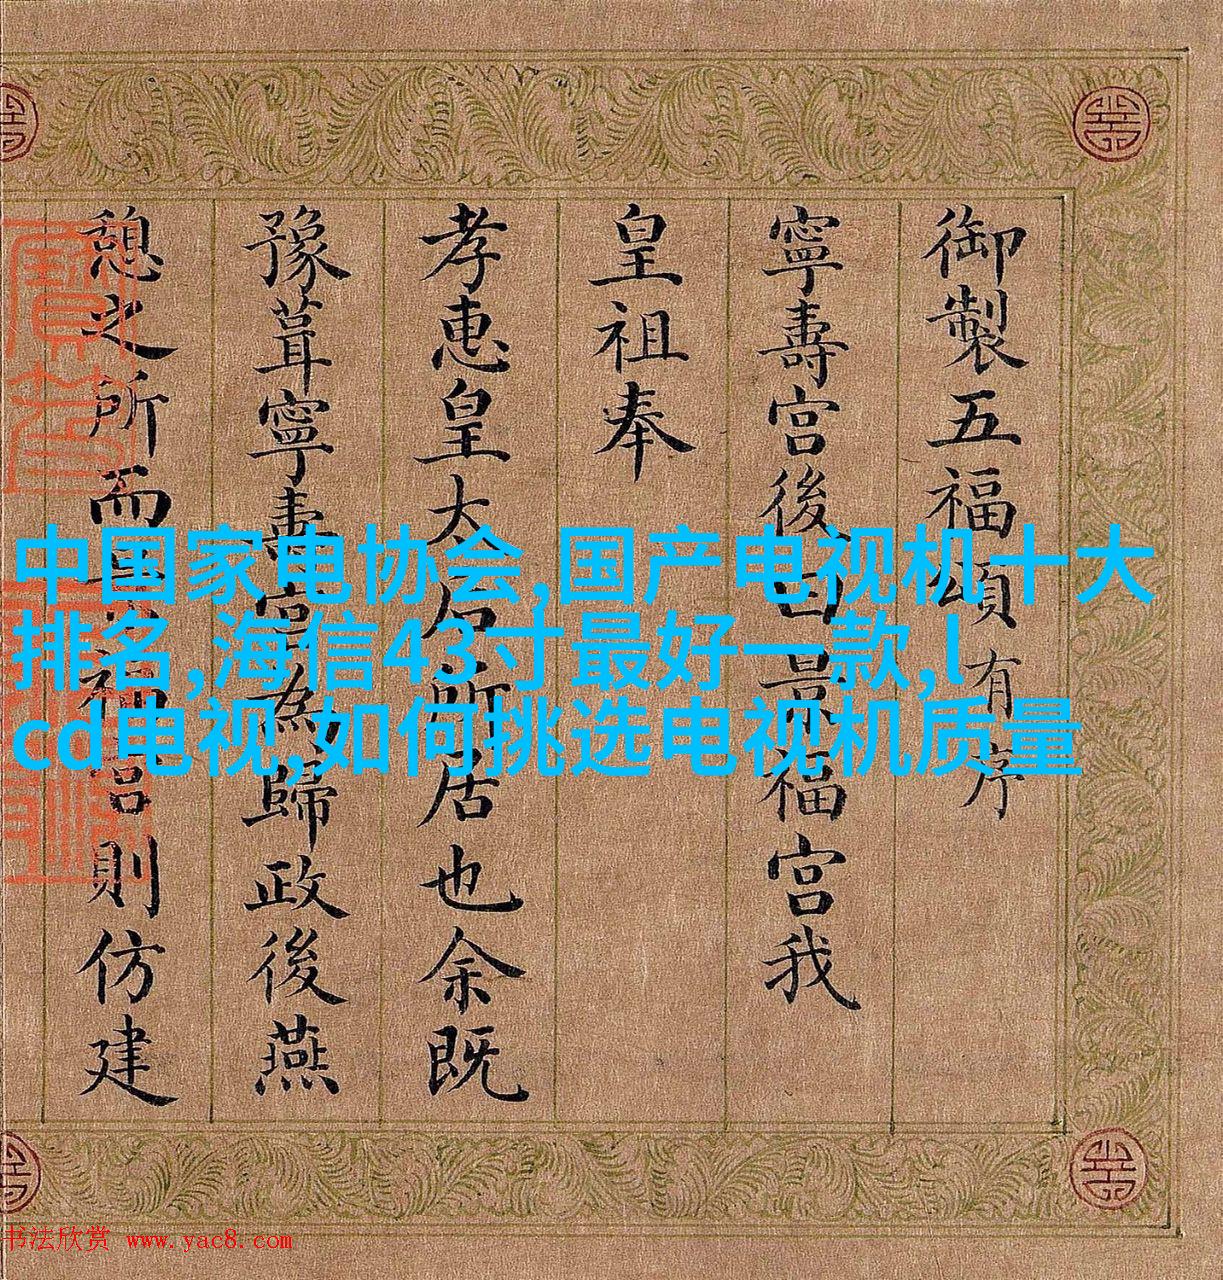 御製五福頌有序
寧壽宮後曰景福宮我
皇祖奉
孝惠皇太后所居也余既
豫葺寧壽宮為歸政後燕
憩之所而福宮則仿建
中国家电协会,国产电视机十大
排名,海信43寸最好一款,l
cd电视,如何挑选电视机质量
书法欣赏 www.yac8.com